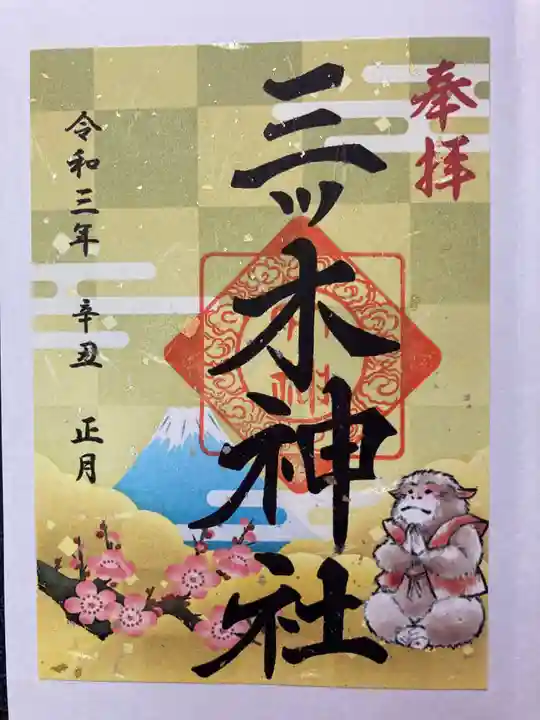 奉拝
三ッ木神社
令和三年 辛丑 正月